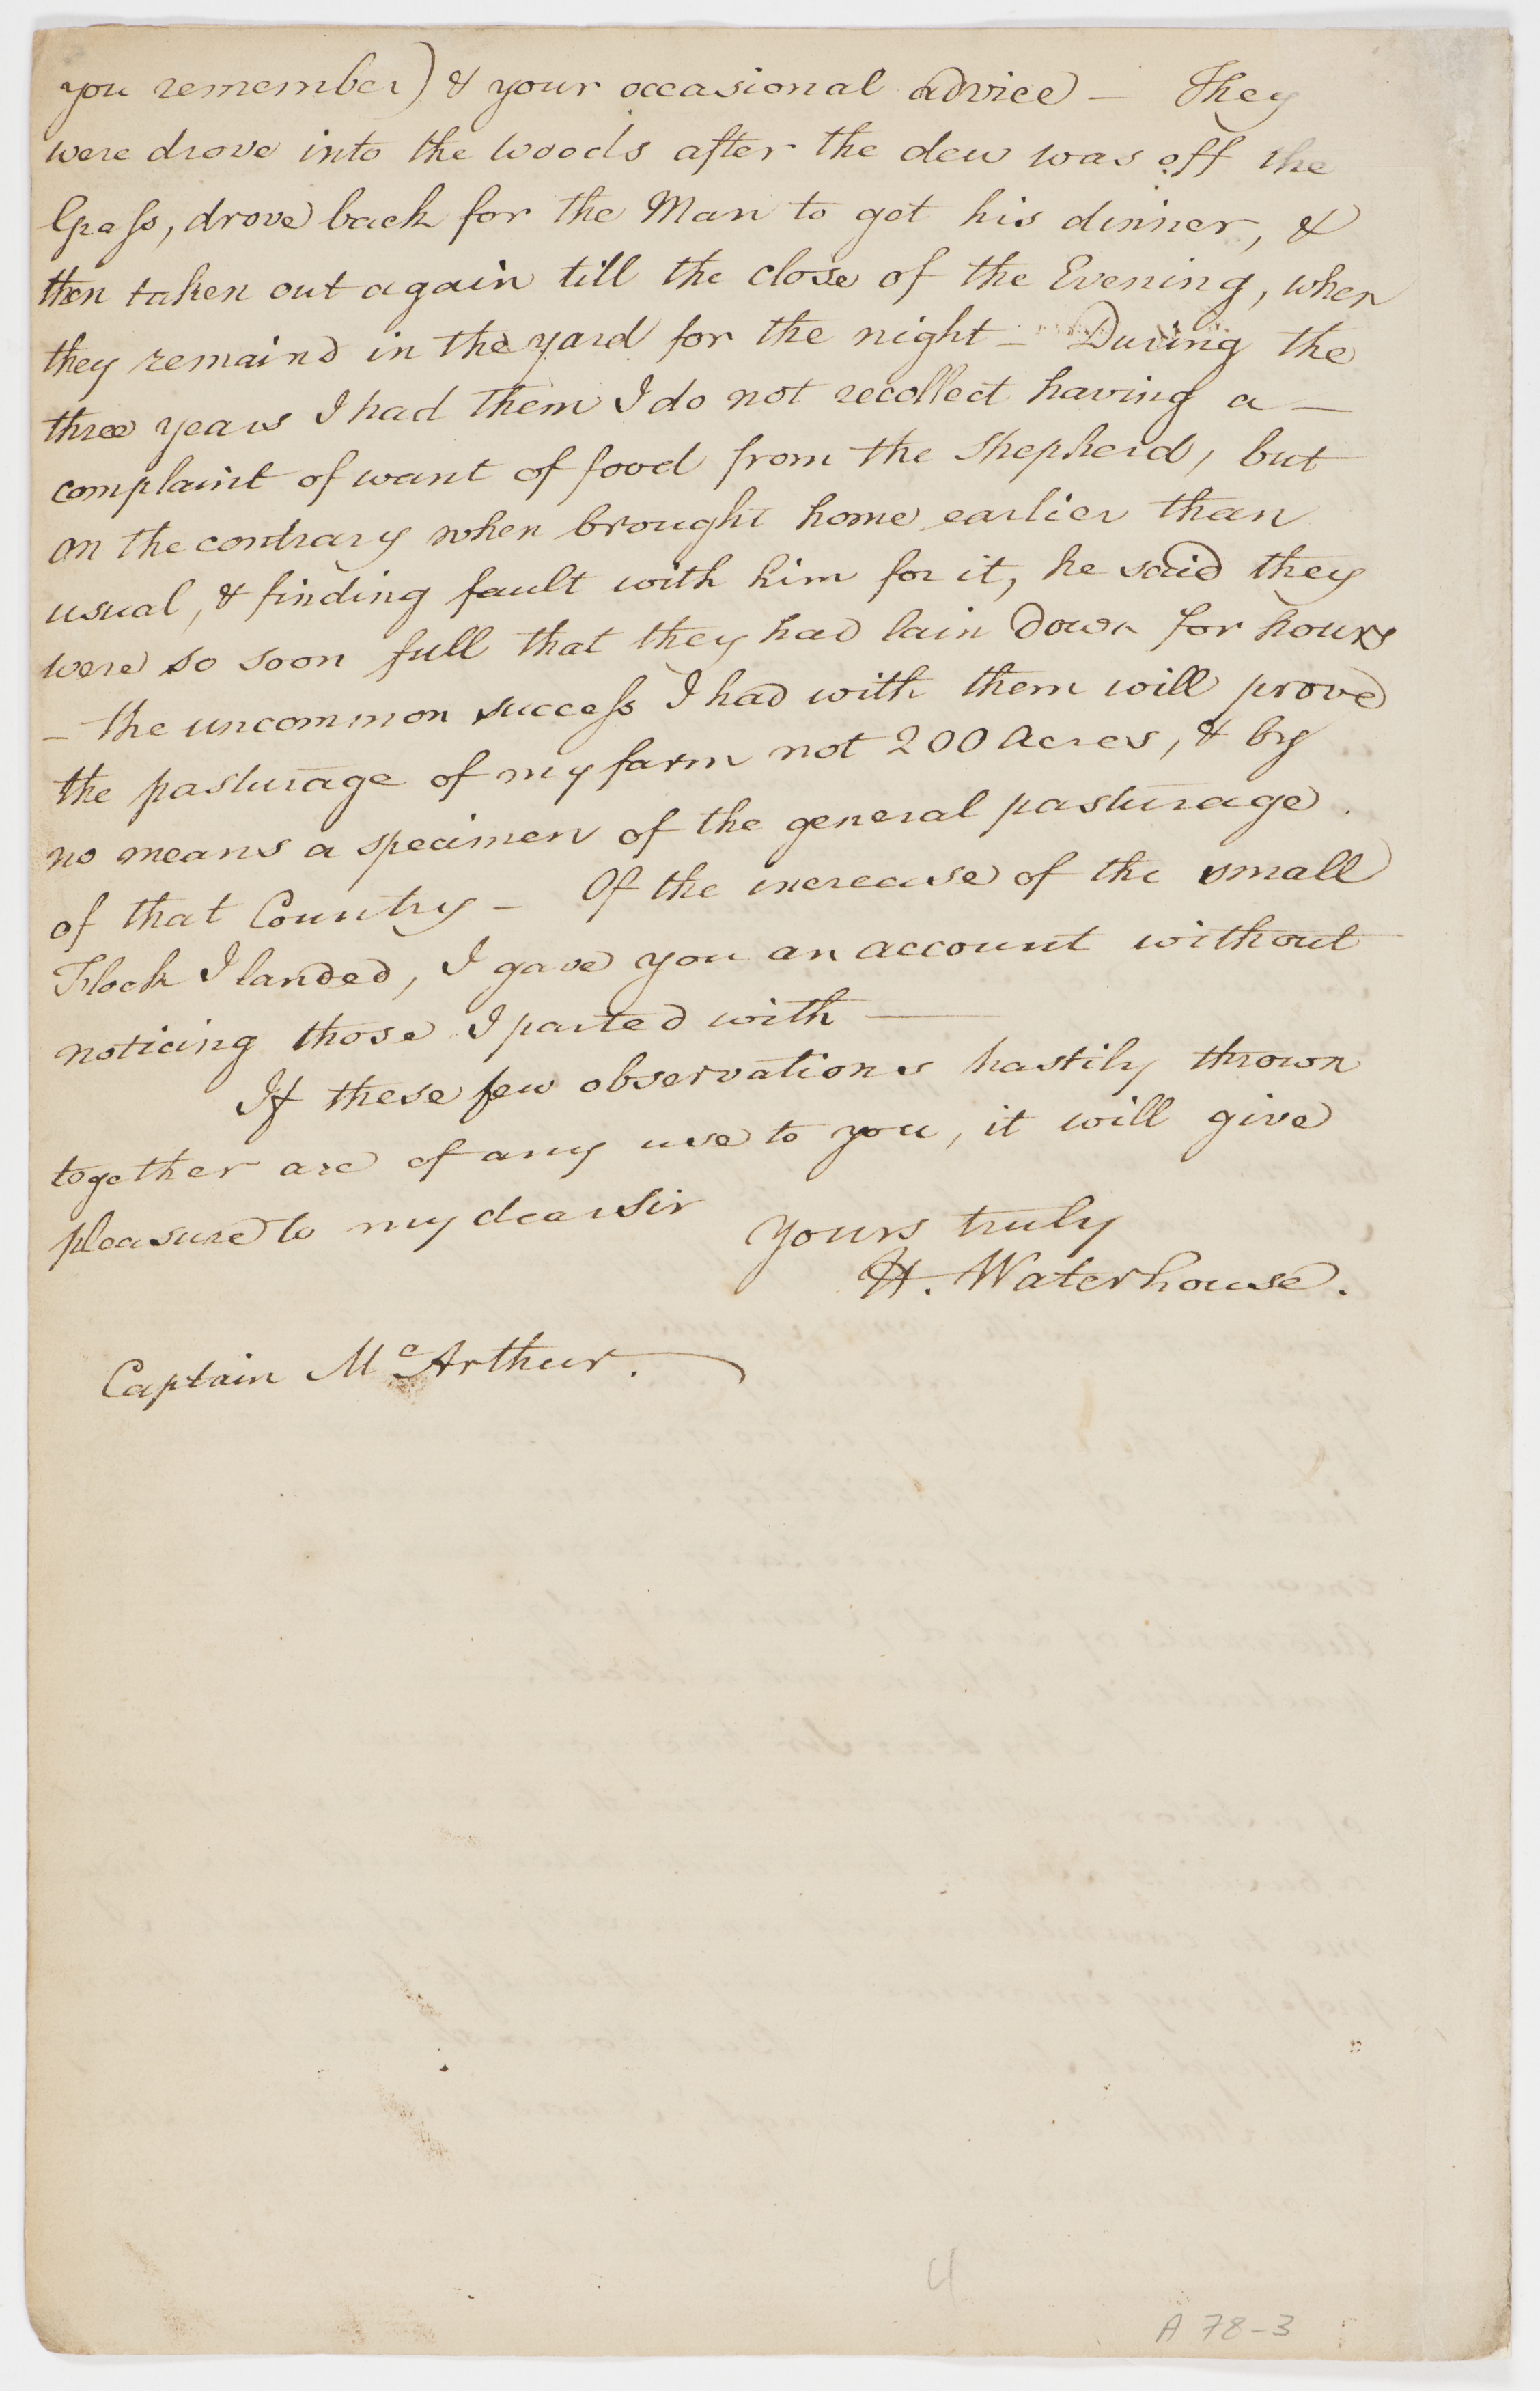 you remember) & your occasional advice — They
were drove into the woods after the dew was off the
Grass, drove back for the Man to get his dinner, &
then taken out again till the close of the Evening, when
they remaind in the yard for the night — During the
three years I had them I do not recollect having a —
complaint of want of food from the Shepherd, but
on the contrary when brought home earlier than
usual, & finding fault with him for it, he said they
were so soon full that they had lain down for hours
— the uncommon success I had with them will prove
the pasturage of my farm not 200 Acres, & by
no means a specimen of the general pasturage
of that Country — Of the increase of the small
Flock I landed, I gave you an account without
noticing those I parted with —
If these few observations hastily thrown
together are of any use to you, it will give
pleasure to my dear Sir
Yours truly
H. Waterhouse.
Captain McArthur.
4
A 78-3